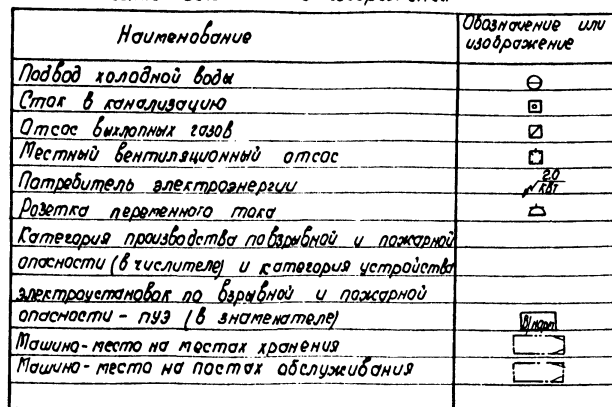 Наименование
Обозначение или
изображение
Подвод холодной воды
Сток в канализацию
Отсос выхлопных газов
Местный вентиляционный отсос
Потребитель электроэнергии
2.0
кВт
Розетка переменного тока
Категория производства по взрывной и пожарной
опасности (в числителе) и категория устройства
электроустановок по взрывной и пожарной
опасности - ПУЭ (в знаменателе)
В/норм
Машино-место на местах хранения
Машино-место на постах обслуживания